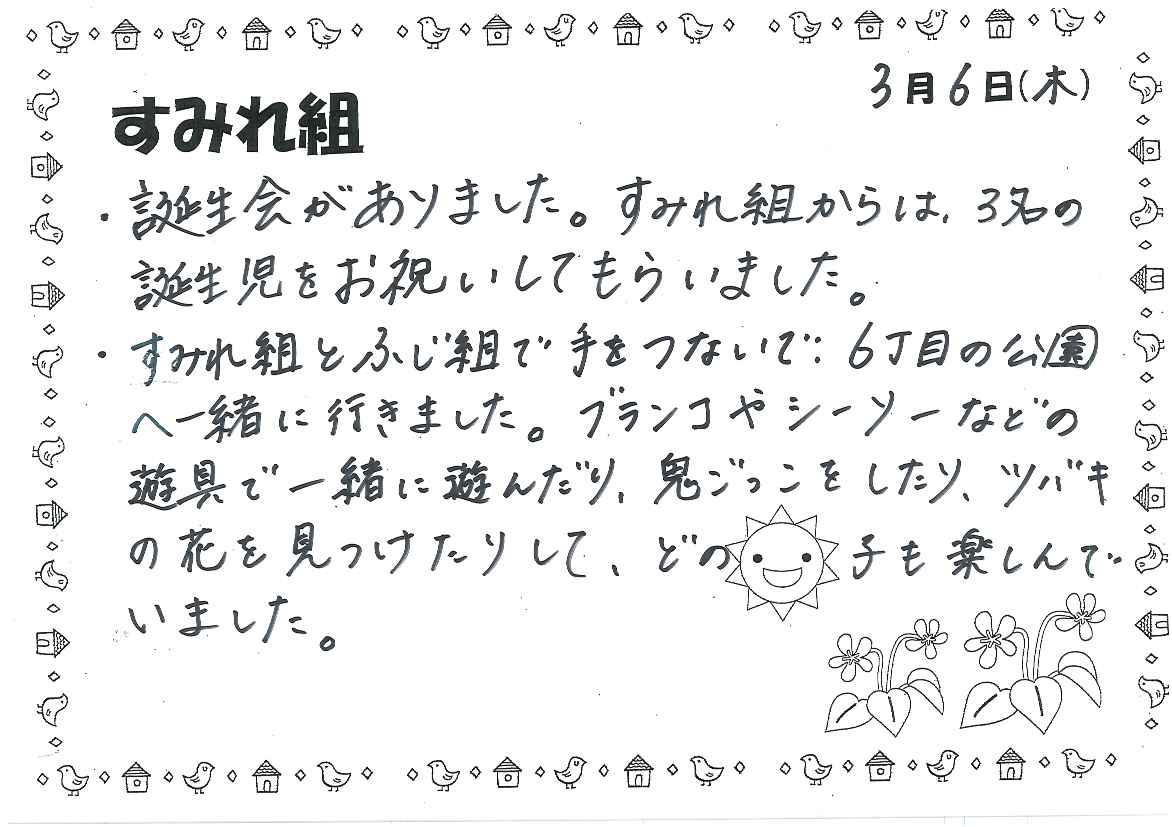 3月6日(木)
すみれ組
・誕生会がありました。すみれ組からは、3名の
誕生児をお祝いしてもらいました。
・すみれ組とふじ組で手をつないで、6丁目の公園
へ一緒に行きました。ブランコやシーソーなどの
遊具で一緒に遊んだり、鬼ごっこをしたり、ツバキ
の花を見つけたりして、どの子も楽しんで
いました。